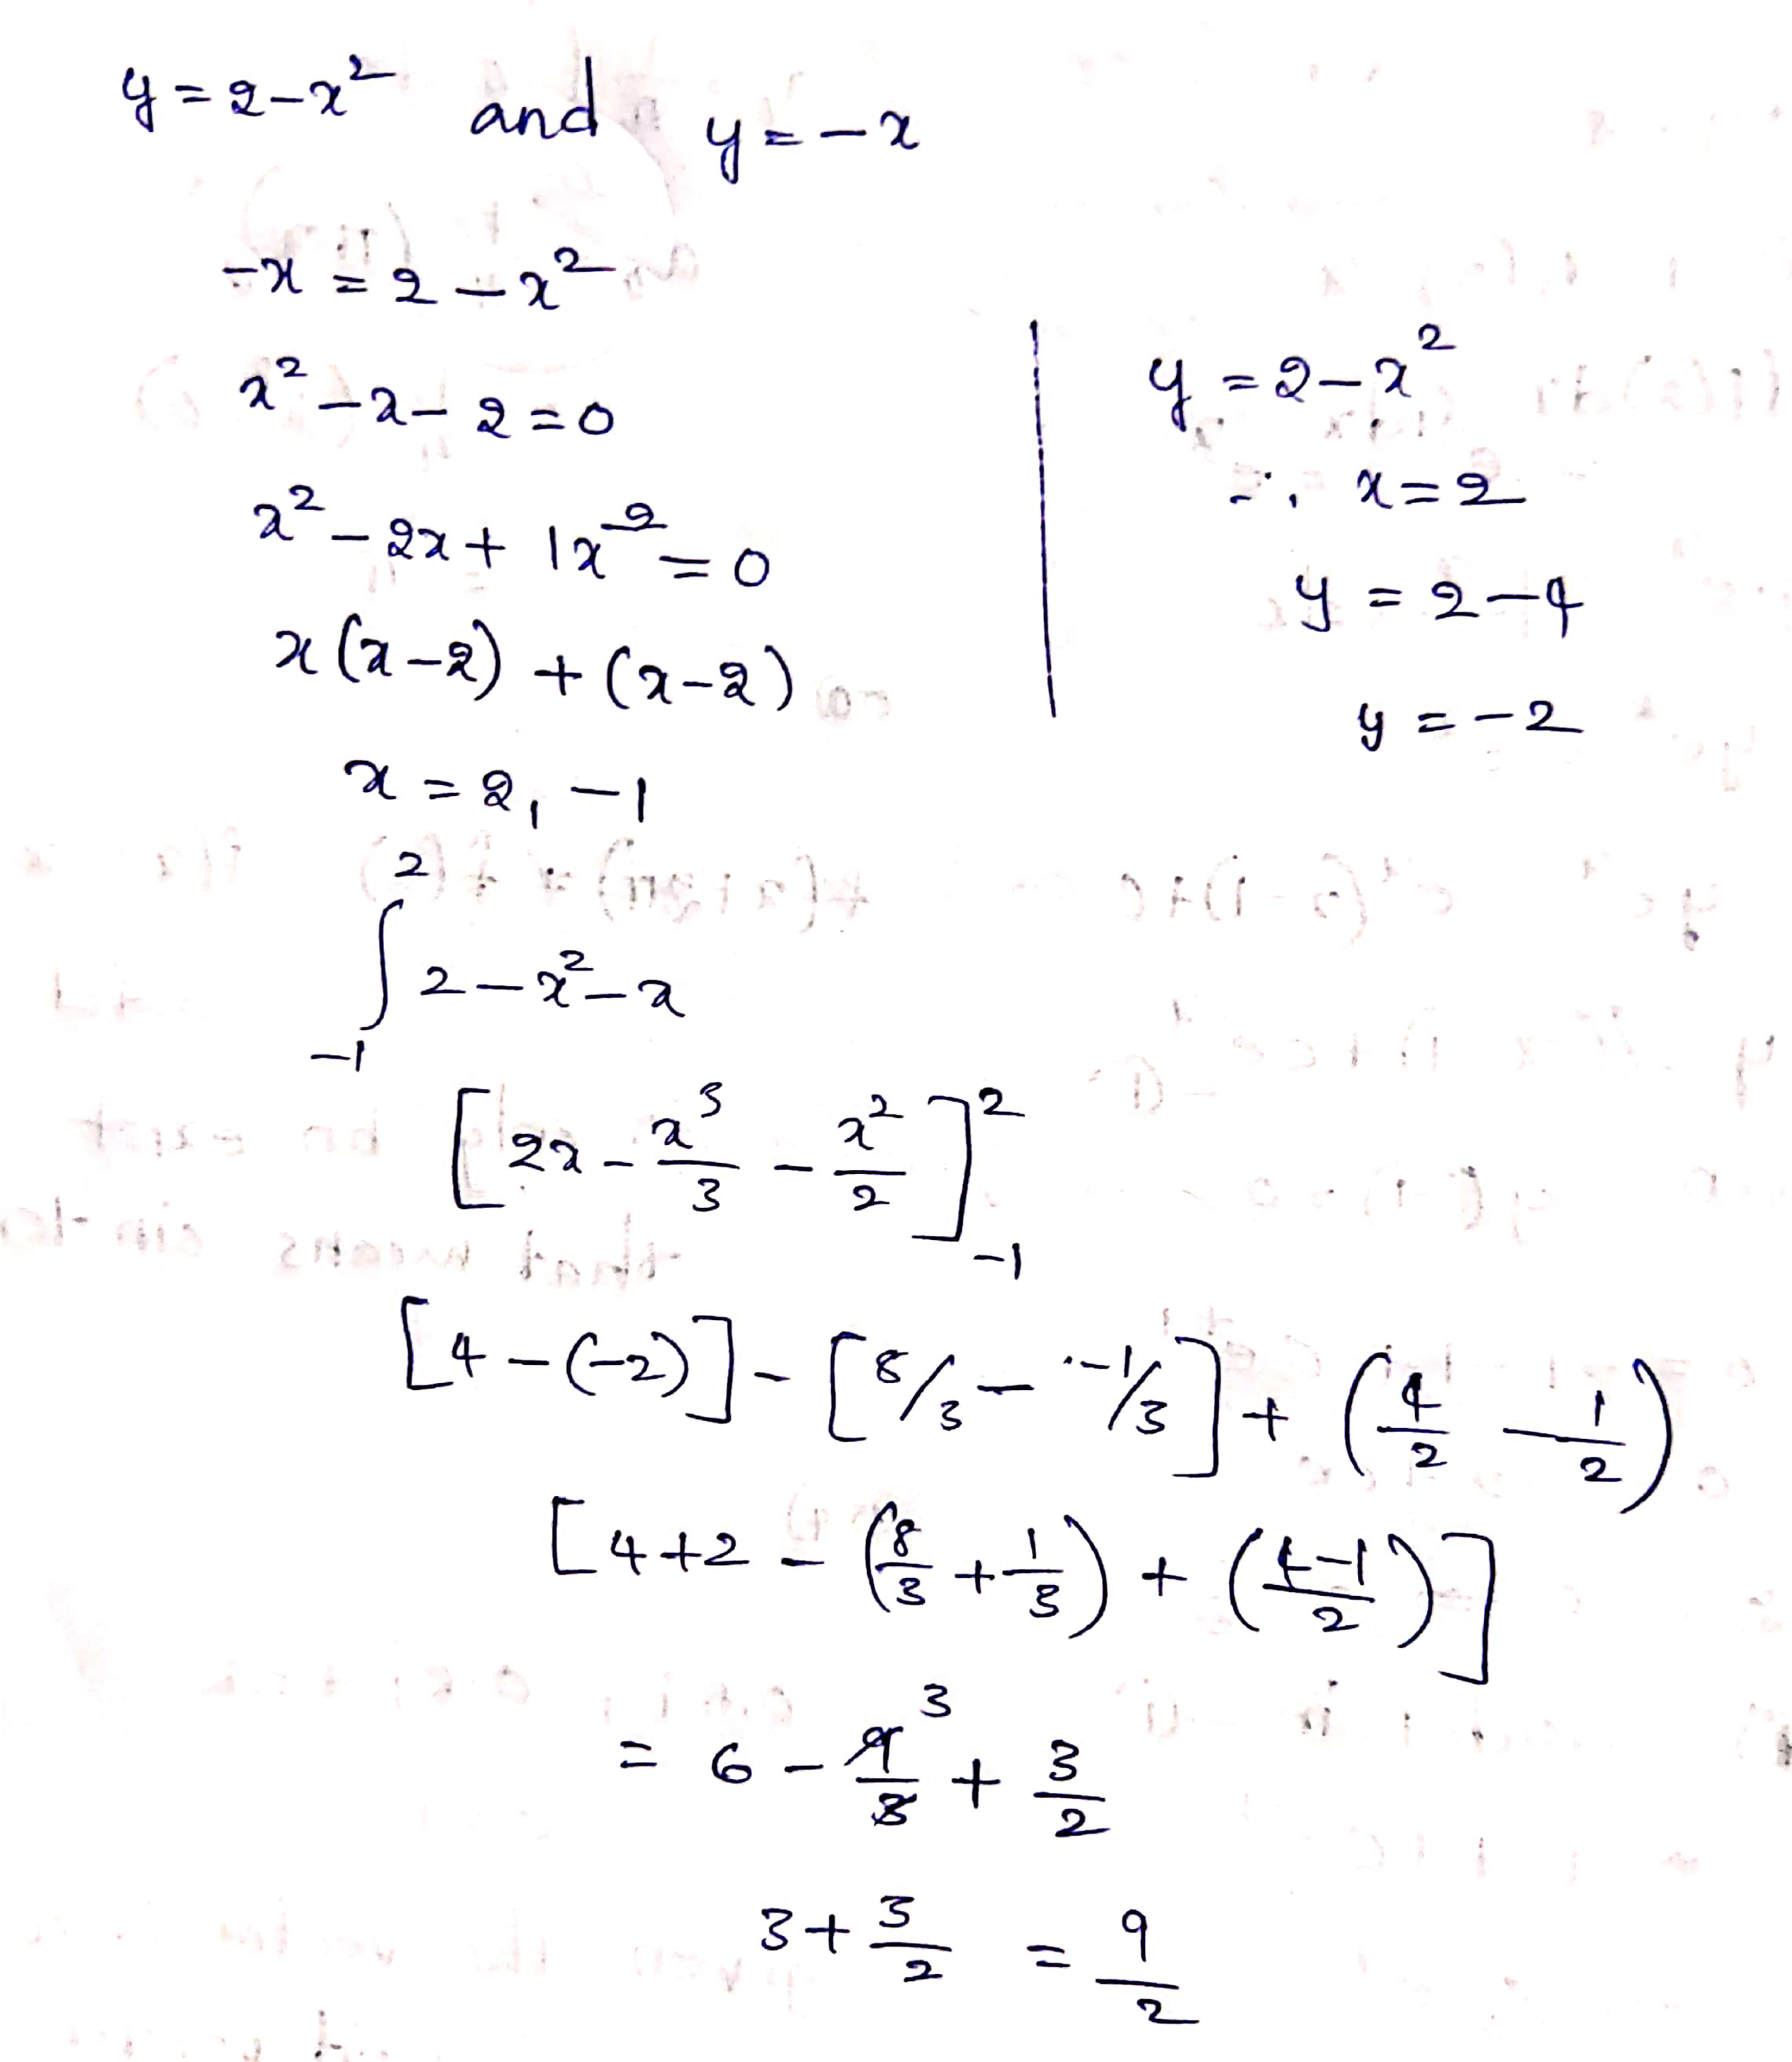 y = 2 - x² and y = -x
-x = 2 - x²
x² - x - 2 = 0
x² - 2x + 1x - 2 = 0
x (x - 2) + (x - 2)
x = 2, -1
y = 2 - x²
∴ x = 2
y = 2 - 4
y = -2
∫₋₁² 2 - x² - x
[2x - x³/3 - x²/2]²₋₁
[4 - (-2)] - [8/3 - -1/3] + (4/2 - 1/2)
[4 + 2 - (8/3 + 1/3) + (4-1/2)]
= 6 - 9/3 3 + 3/2
3 + 3/2 = 9/2